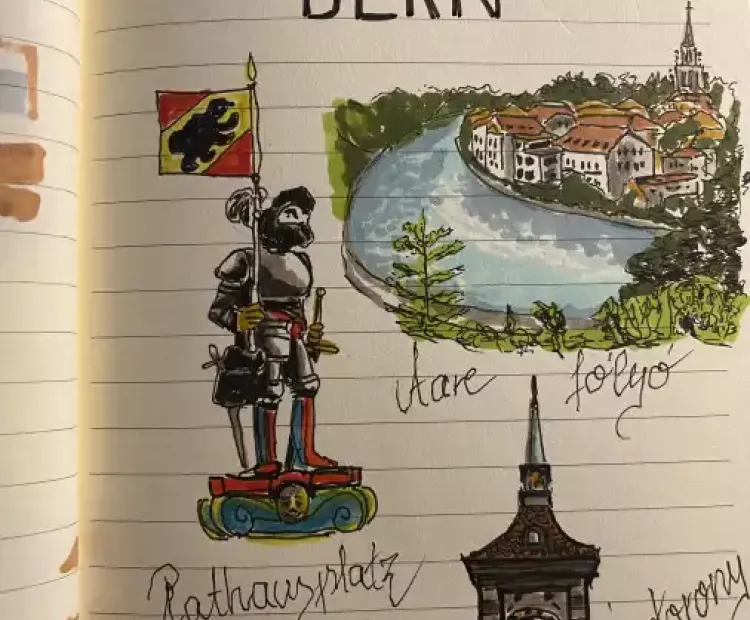 BERN
Aare folyó
Rathausplatz
torony